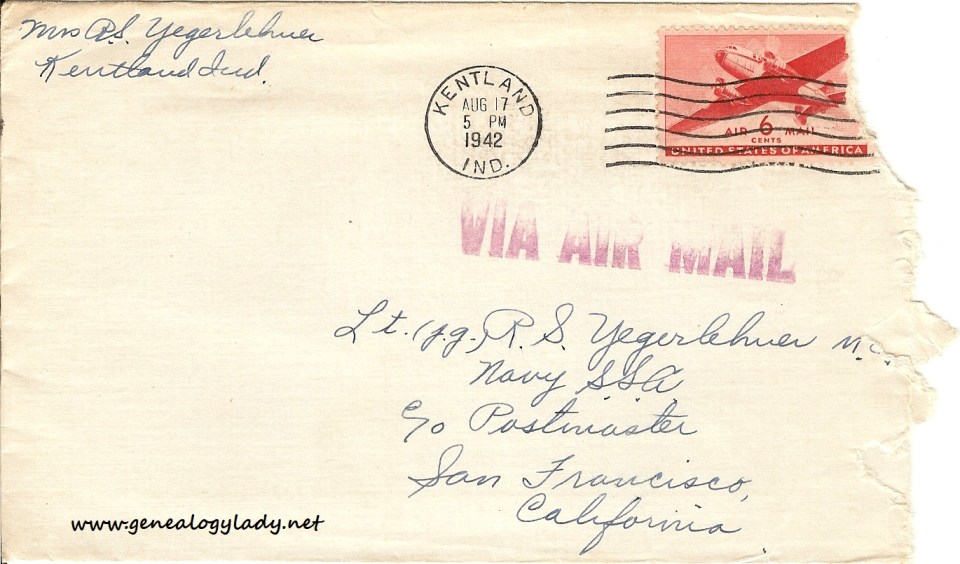 Mrs R.S. Yegerlehner
Kentland Ind.
KENTLAND
AUG 17
5 PM
1942
IND.
AIR 6 MAIL
CENTS
UNITED STATES OF AMERICA
VIA AIR MAIL
Lt. (j.g.) R. S. Yegerlehner M.C.
Navy
c/o Postmaster
San Francisco,
California
www.genealogylady.net